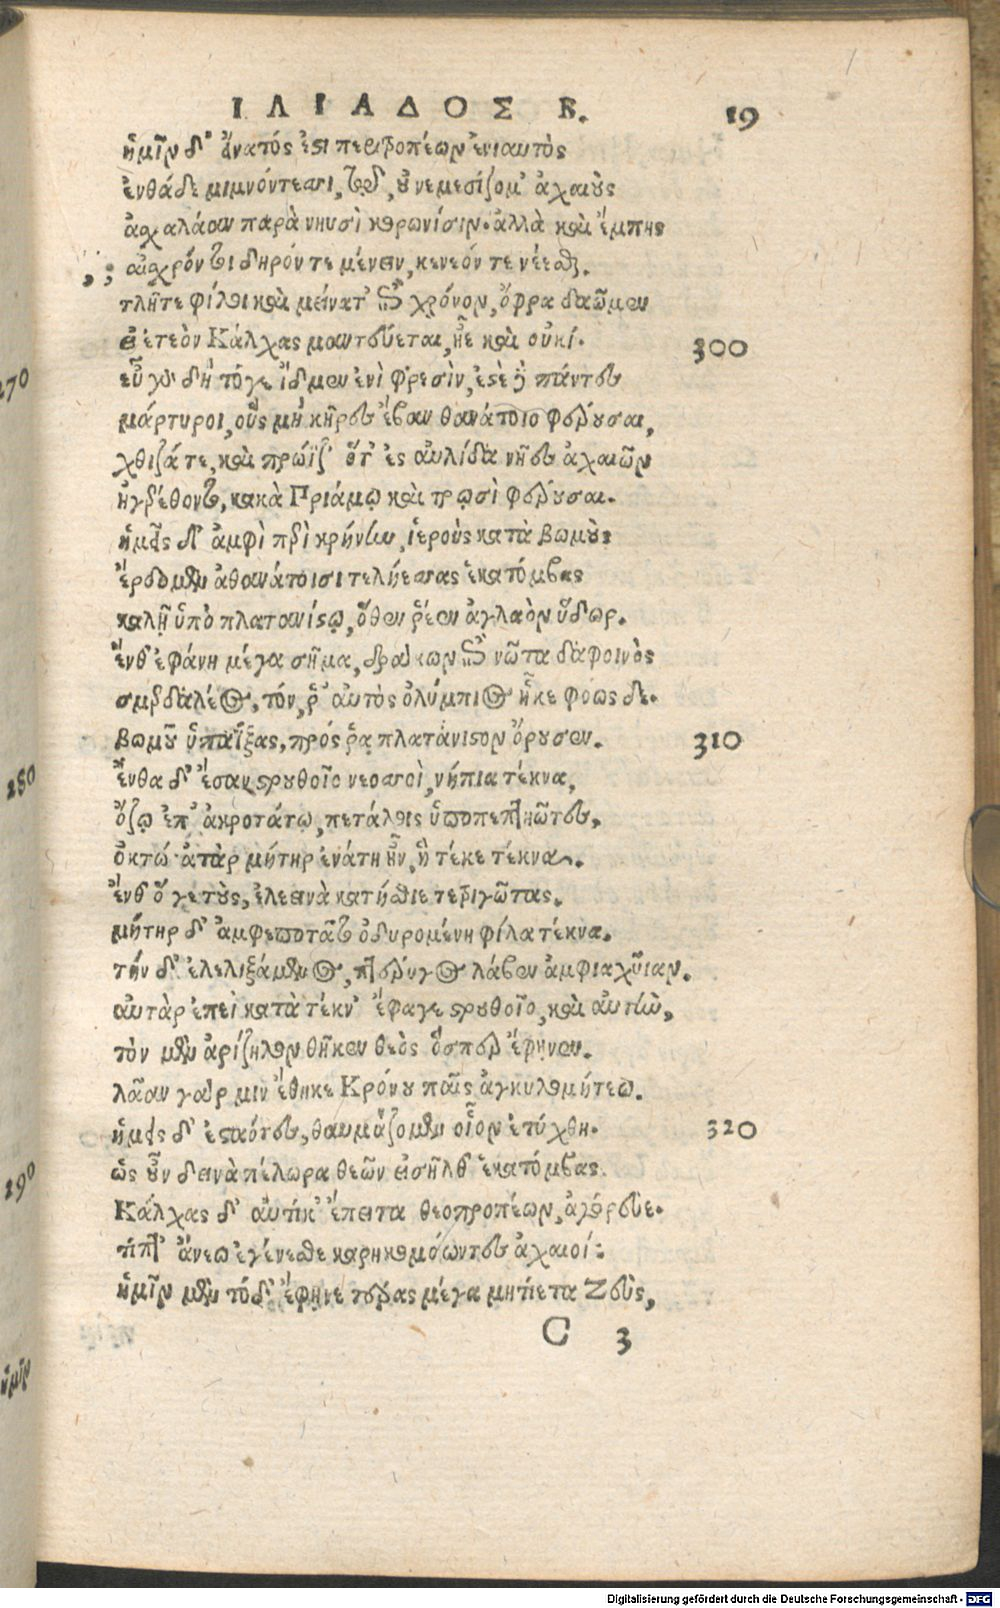 ΙΛΙΑΔΟΣ Β. 19
ἡμῖν δ' ἔνατός ἐστι περιτροπέων ἐνιαυτὸς
ἐνθάδε μιμνόντεσσι, τῷδ, οὐ νεμεσίζομ' ἀχαιοὺς
ἀσχαλάαν παρὰ νηυσὶ κορωνίσιν. ἀλλὰ καὶ ἔμπης
αἰσχρόν τοι δηρόν τε μένειν, κενεόν τε νέεσθαι.
τλῆτε φίλοι καὶ μείνατ' ἐπὶ χρόνον, ὄφρα δαῶμεν
εἰ ἐτεὸν Κάλχας μαντεύεται, ἠὲ καὶ οὐκί. 300
εὖ γὰρ δὴ τόγε ἴδμεν ἐνὶ φρεσὶν, ἐστὲ δὲ πάντες
μάρτυροι, οὓς μὴ κῆρες ἔβαν θανάτοιο φέρουσαι,
χθιζά τε, καὶ πρώϊζ' ὅτ' ἐς αὐλίδα νῆες ἀχαιῶν
ἠγερέθοντο, κακὰ Πριάμῳ καὶ τρωσὶ φέρουσαι.
ἡμεῖς δ' ἀμφὶ περὶ κρήνην, ἱεροὺς κατὰ βωμοὺς
ἔρδομεν ἀθανάτοισι τελήεσσας ἑκατόμβας
καλῇ ὑπὸ πλατανίστῳ, ὅθεν ῥέεν ἀγλαὸν ὕδωρ.
ἔνθ' ἐφάνη μέγα σῆμα, δράκων ἐπὶ νῶτα δαφοινὸς
σμερδαλέος, τόν ῥ' αὐτὸς ὀλύμπιος ἧκε φόως δε.
βωμοῦ ὑπαΐξας, πρός ῥα πλατάνιστον ὄρουσεν. 310
ἔνθα δ' ἔσαν στρουθοῖο νεοσσοὶ, νήπια τέκνα,
ὄζῳ ἐπ' ἀκροτάτῳ, πετάλοις ὑποπεπτηῶτες,
ὀκτώ· ἀτὰρ μήτηρ ἐνάτη ἦν, ἣ τέκε τέκνα.
ἔνθ' ὅ γε τοὺς, ἐλεεινὰ κατήσθιε τετριγῶτας.
μήτηρ δ' ἀμφεποτᾶτο ὀδυρομένη φίλα τέκνα.
τὴν δ' ἐλελιξάμενος, πτέρυγος λάβεν ἀμφιαχῦιαν.
αὐτὰρ ἐπεὶ κατὰ τέκν' ἔφαγε στρουθοῖο, καὶ αὐτὴν,
τὸν μὲν ἀρίζηλον θῆκεν θεὸς ὅσπερ ἔφηνεν.
λᾶαν γάρ μιν ἔθηκε Κρόνου παῖς ἀγκυλομήτεω.
ἡμεῖς δ' ἑσταότες, θαυμάζομεν οἷον ἐτύχθη. 320
ὡς οὖν δεινὰ πέλωρα θεῶν εἰσῆλθ' ἑκατόμβας.
Κάλχας δ' αὐτίκ' ἔπειτα θεοπροπέων, ἀγόρευε.
τίπτ' ἄνεω ἐγένεσθε καρηκομόωντες ἀχαιοί;
ἡμῖν μὲν τόδ' ἔφηνε τέρας μέγα μητίετα Ζεὺς,
C 3
270
280
290
ἡμῖν
Digitalisierung gefördert durch die Deutsche Forschungsgemeinschaft - DFG